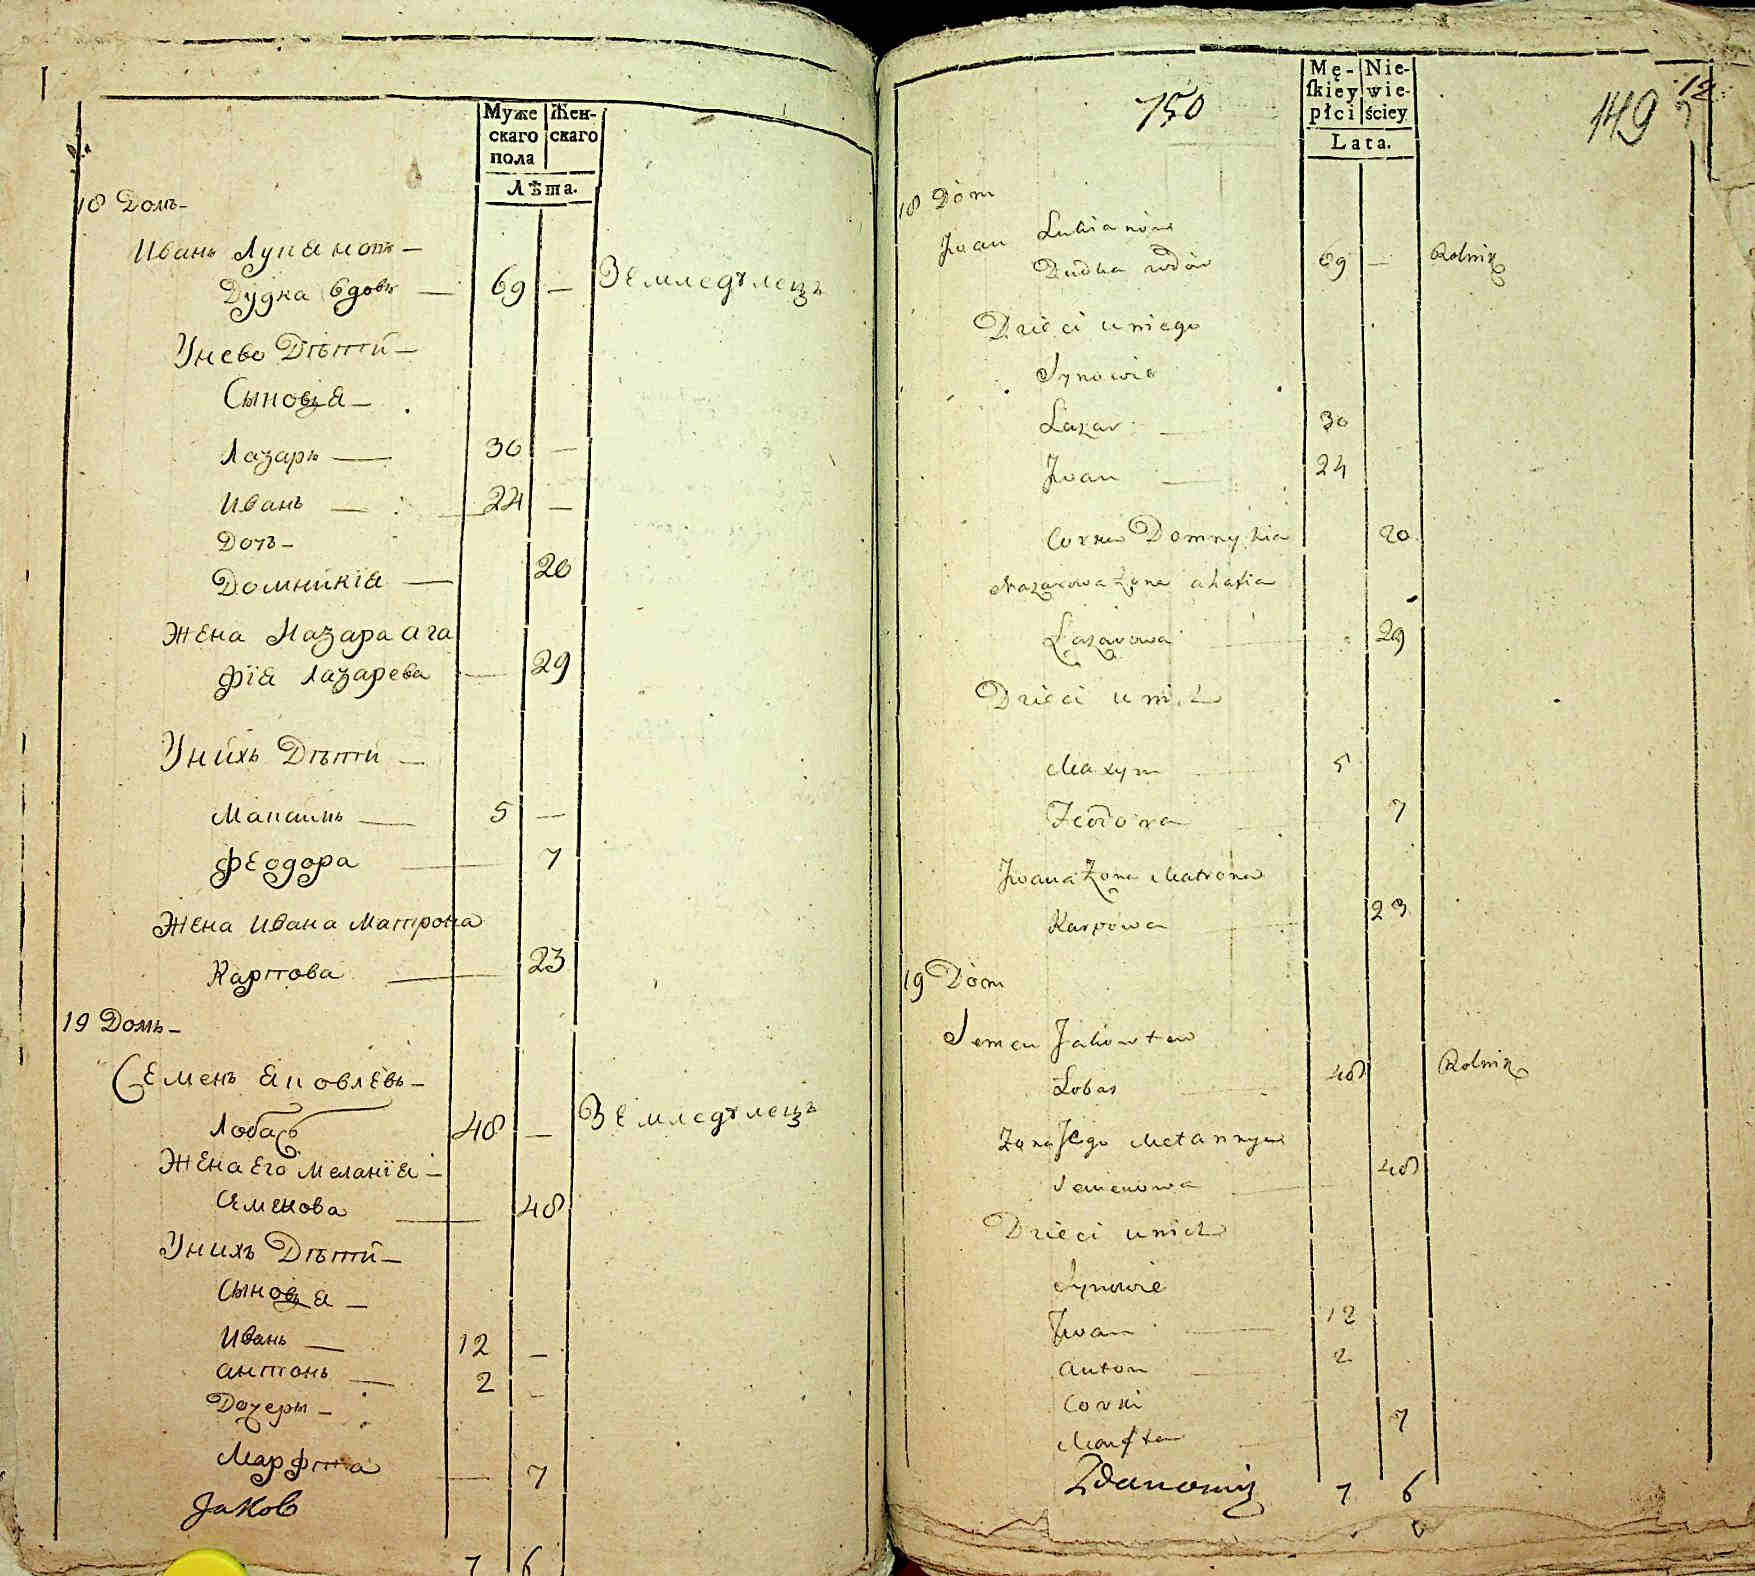 Муже
скаго
пола
Жен-
скаго
Лѣта.
18 Домъ-
Иванъ Лукяновъ-
Дудка вдовъ — 69 — Земледѣлецъ
Унево Дѣти-
Сыновья-
Лазарь — 30 —
Иванъ — 24 —
Дочъ-
Домникія — 20
Жена Лазара ага
фія Лазарева — 29
Унихъ Дѣти —
Максимъ — 5 —
Феодора — 7
Жена Ивана Матрона
Карпова — 23
19 Домъ-
Семенъ Яковлевъ-
Лобасъ 48 — Земледѣлецъ
Жена Его Меланія-
Семенова — 48
Унихъ Дѣти-
Сыновья-
Иванъ — 12 —
Антонъ — 2 -
Дочеры-
Марфта — 7
Jakob
7 6
150
Mę-
skiey
płci
Nie-
wie-
ściey
Lata.
149
12
18 Dóm
Jwan Lukianow
Dudka wdów 69 — Rolnik
Dzieci uniego
Synowie
Lazar — 30
Jwan — 24
Corka Domnykia 20
Żona ahafia
Lazarowa — 29
Dzieci unich
Maxym — 5
Feodora — 7
Jwana Żona Matrona
Karpowa — 23
19 Dóm
Semen
Lobas — 48 Rolnik
Żona Jego Melannya
Semenowa — 48
Dzieci unich
Synowie
Jwan — 12
Anton — 2
Corki
Marfta — 7
Zdanowicz 7 6